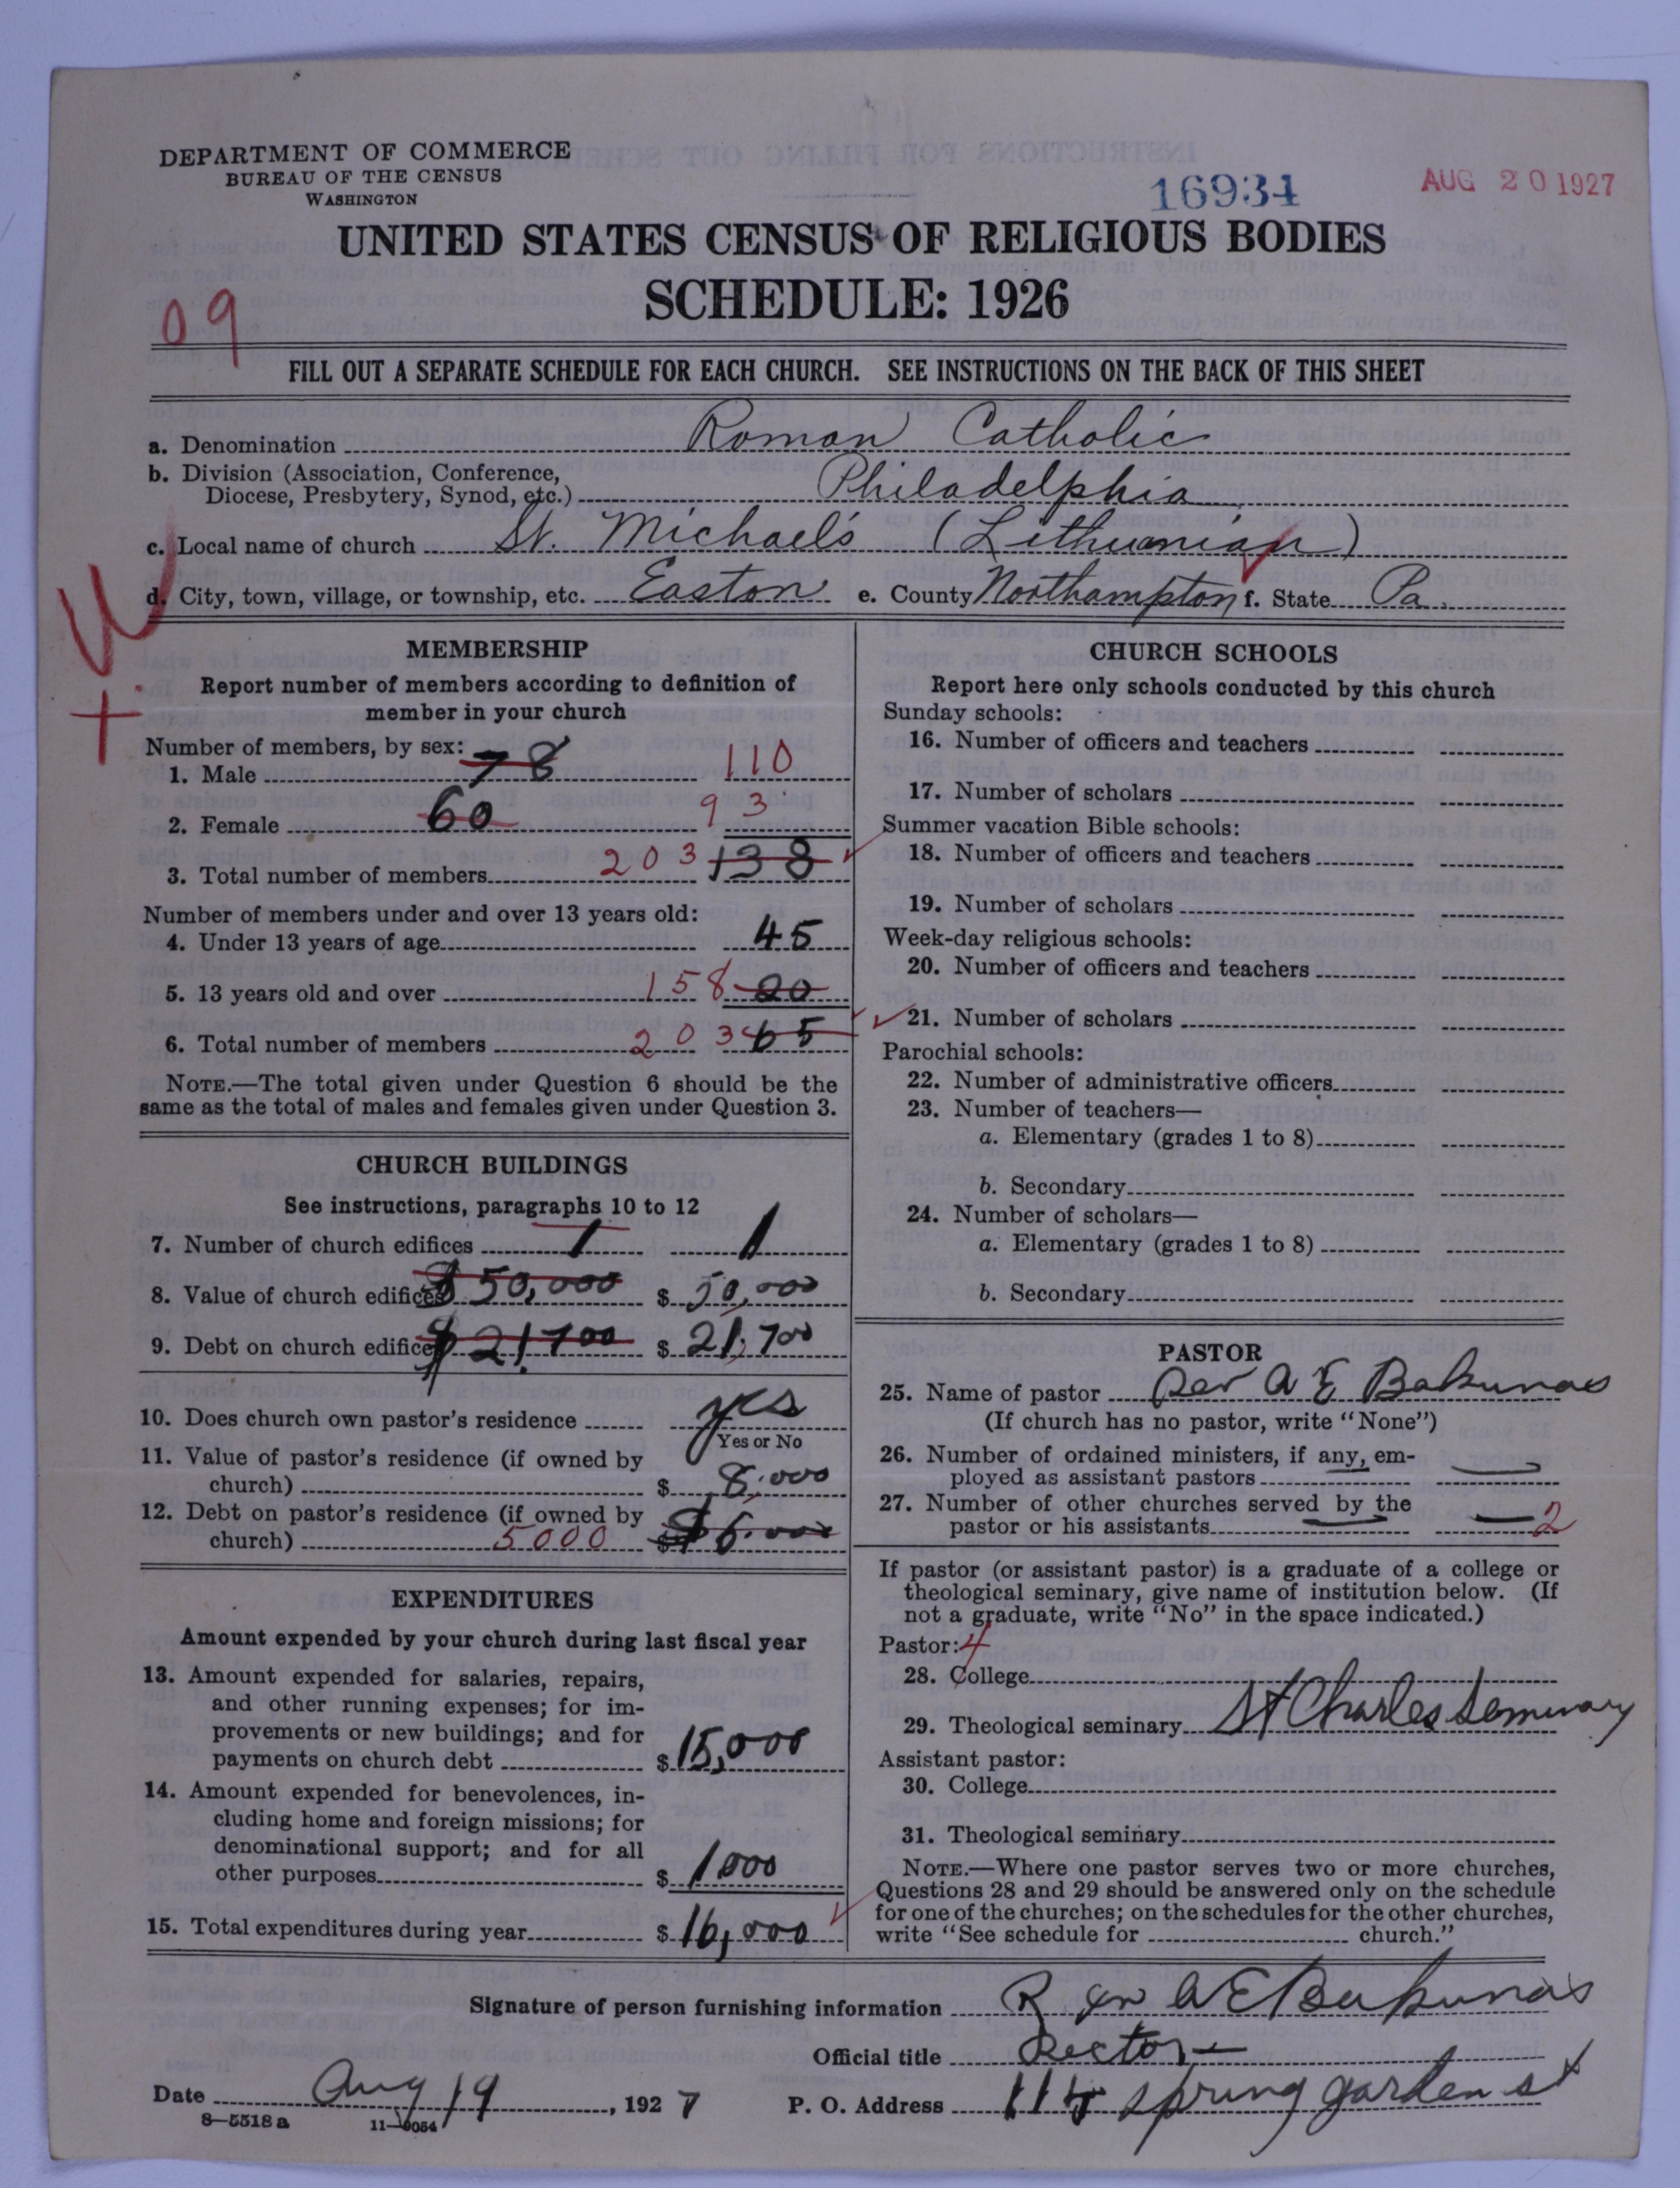 DEPARTMENT OF COMMERCE
BUREAU OF THE CENSUS
WASHINGTON
16934
AUG 20 1927
UNITED STATES CENSUS OF RELIGIOUS BODIES
SCHEDULE: 1926
09
FILL OUT A SEPARATE SCHEDULE FOR EACH CHURCH. SEE INSTRUCTIONS ON THE BACK OF THIS SHEET
a. Denomination Roman Catholic
b. Division (Association, Conference,
Diocese, Presbytery, Synod, etc.) Philadelphia
c. Local name of church St. Michael's (Lithuanian)
d. City, town, village, or township, etc. Easton e. County Northampton f. State Pa.
MEMBERSHIP
Report number of members according to definition of
member in your church
Number of members, by sex:
1. Male 78 110
2. Female 60 93
3. Total number of members 203 138
Number of members under and over 13 years old:
4. Under 13 years of age 45
5. 13 years old and over 158 20
6. Total number of members 203 65
NOTE.—The total given under Question 6 should be the
same as the total of males and females given under Question 3.
CHURCH BUILDINGS
See instructions, paragraphs 10 to 12
7. Number of church edifices 1 1
8. Value of church edifices $50,000 $ 50,000
9. Debt on church edifices $21,700 $ 21,700
10. Does church own pastor's residence yes
Yes or No
11. Value of pastor's residence (if owned by
church) $ 8,000
12. Debt on pastor's residence (if owned by
church) 5000 $ 6,000
EXPENDITURES
Amount expended by your church during last fiscal year
13. Amount expended for salaries, repairs,
and other running expenses; for im-
provements or new buildings; and for
payments on church debt $ 15,000
14. Amount expended for benevolences, in-
cluding home and foreign missions; for
denominational support; and for all
other purposes $ 1,000
15. Total expenditures during year $ 16,000
CHURCH SCHOOLS
Report here only schools conducted by this church
Sunday schools:
16. Number of officers and teachers
17. Number of scholars
Summer vacation Bible schools:
18. Number of officers and teachers
19. Number of scholars
Week-day religious schools:
20. Number of officers and teachers
21. Number of scholars
Parochial schools:
22. Number of administrative officers
23. Number of teachers—
a. Elementary (grades 1 to 8)
b. Secondary
24. Number of scholars—
a. Elementary (grades 1 to 8)
b. Secondary
PASTOR
25. Name of pastor Rev A E Bakunas
(If church has no pastor, write "None")
26. Number of ordained ministers, if any, em-
ployed as assistant pastors —
27. Number of other churches served by the
pastor or his assistants — 2
If pastor (or assistant pastor) is a graduate of a college or
theological seminary, give name of institution below. (If
not a graduate, write "No" in the space indicated.)
Pastor: 4
28. College
29. Theological seminary St Charles Seminary
Assistant pastor:
30. College
31. Theological seminary
NOTE.—Where one pastor serves two or more churches,
Questions 28 and 29 should be answered only on the schedule
for one of the churches; on the schedules for the other churches,
write "See schedule for church."
Signature of person furnishing information Rev A E Bakunas
Official title Rector
Date Aug 19, 1927 P. O. Address spring garden st
8—5518a